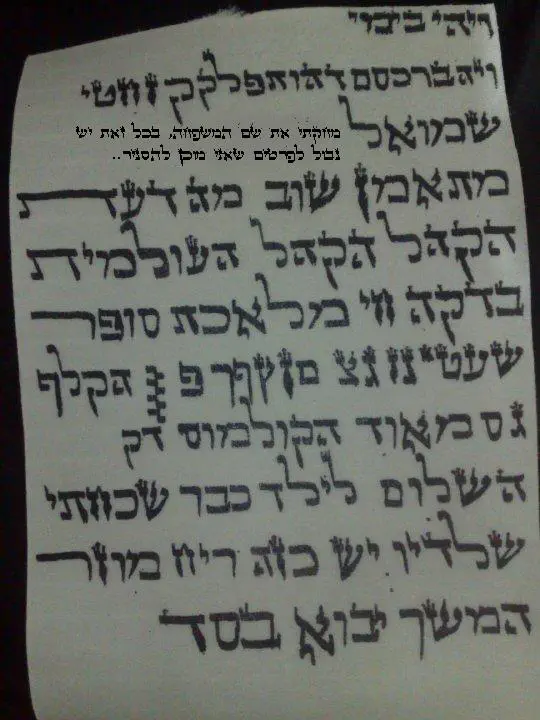 ויהי בימי
שמואל
מחקתי את שם המשפחה, בכל זאת יש
גבול לפרטים שאני מוכן להסגיר..
מתאמן שוב מה דעת
הקהל הקהל העולמית
בדקה חי מלאכת סופר
שעטנז גצ הקלף
גס מאוד הקולמוס דק
השלום לילד כבר שכחתי
שלדיו יש כזה ריח מוזר
המשך יבוא בסד